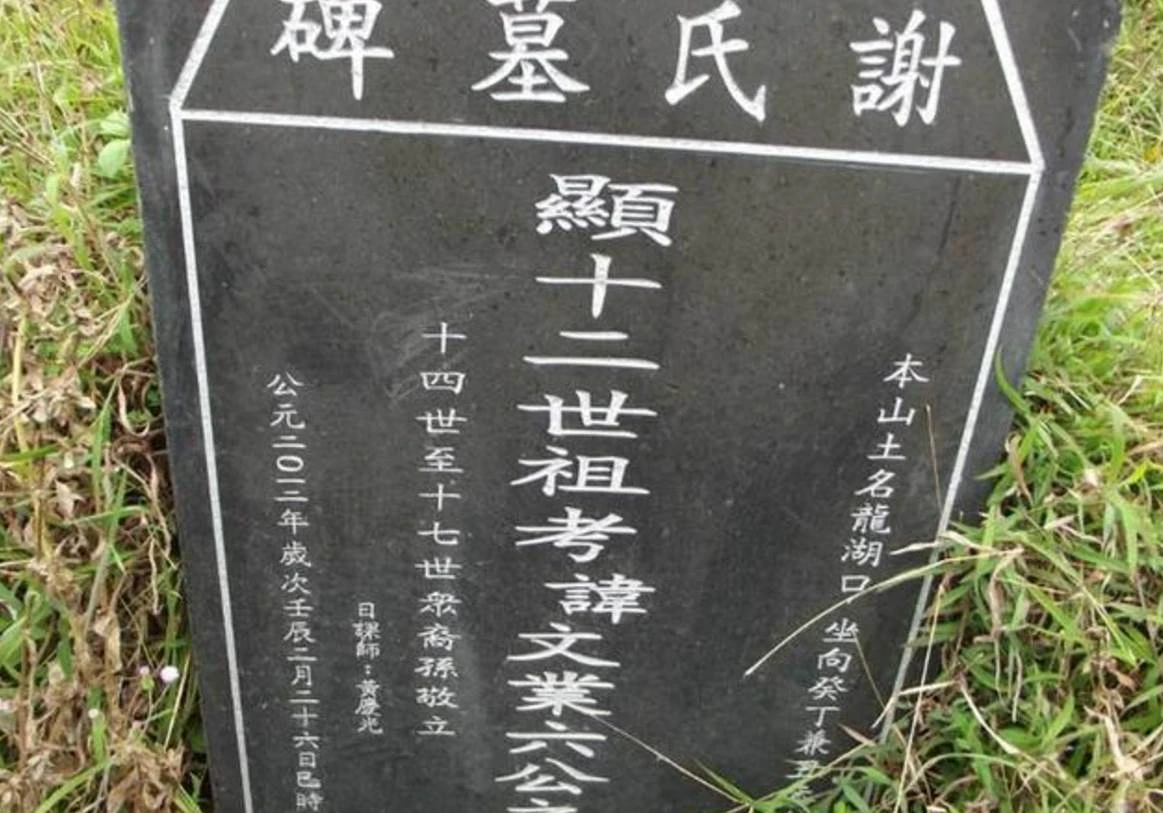 謝氏墓碑
本山土名龍湖口 坐向癸丁兼丑
顯十二世祖考諱文業六公之
十四世至十七世衆裔孫敬立
日課師：黃慶光
公元二〇一二年歲次壬辰二月二十六日巳時